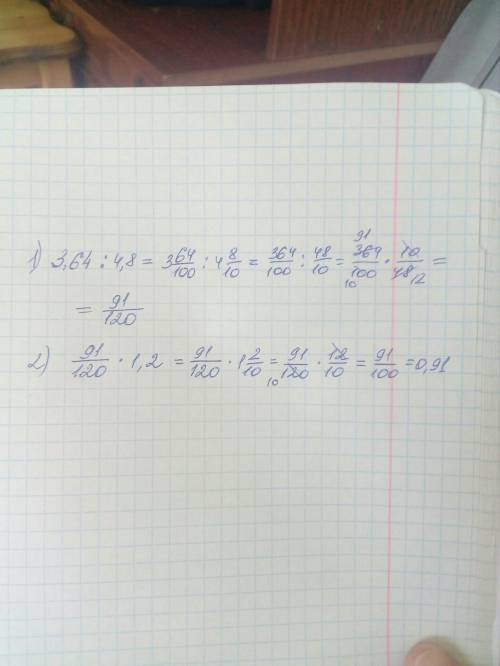 1) 3,64 : 4,8 = 3 64/100 : 4 8/10 = 364/100 : 48/10 = 364/100 · 10/48 =
= 91/120
2) 91/120 · 1,2 = 91/120 · 1 2/10 = 91/120 · 12/10 = 91/100 = 0,91